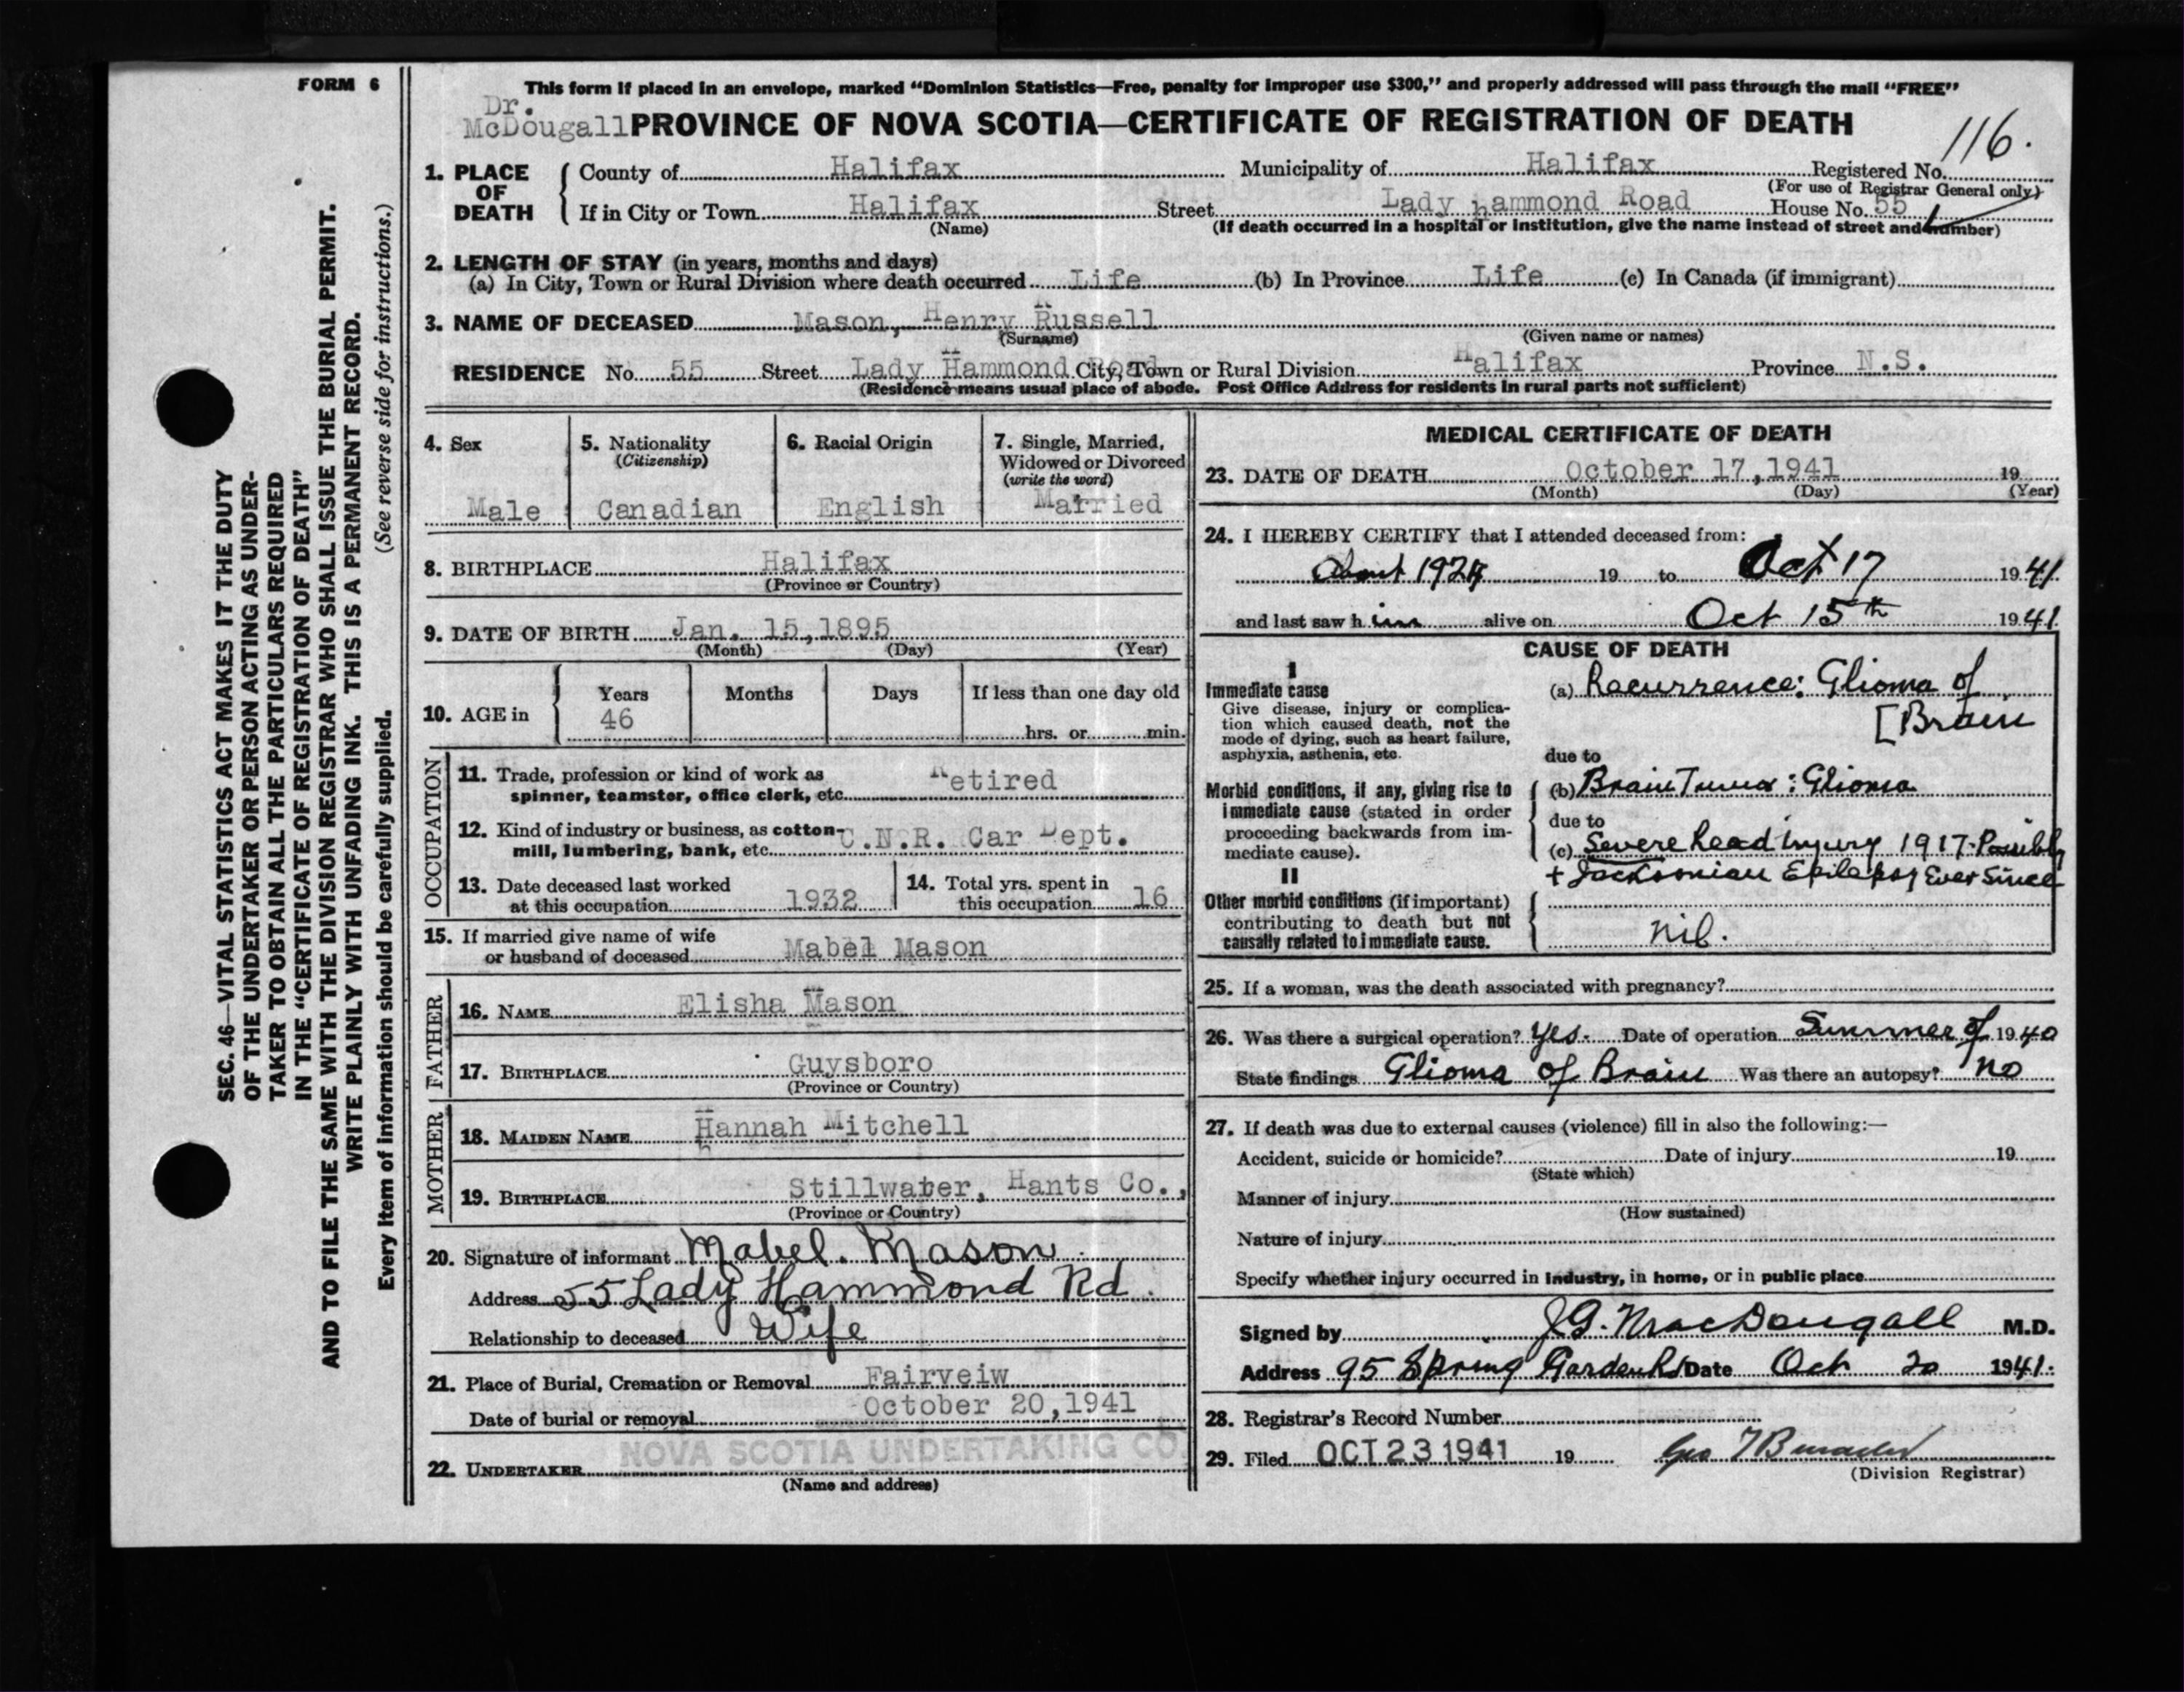 FORM 6
This form if placed in an envelope, marked "Dominion Statistics—Free, penalty for improper use $300," and properly addressed will pass through the mail "FREE"
Dr.
McDougall PROVINCE OF NOVA SCOTIA—CERTIFICATE OF REGISTRATION OF DEATH
116.
1. PLACE OF DEATH { County of Halifax Municipality of Halifax Registered No.
(For use of Registrar General only)
If in City or Town Halifax Street Lady hammond Road House No. 55
(Name) (If death occurred in a hospital or institution, give the name instead of street and number)
2. LENGTH OF STAY (in years, months and days)
(a) In City, Town or Rural Division where death occurred Life (b) In Province Life (c) In Canada (if immigrant)
3. NAME OF DECEASED Mason, Henry Russell
(Surname) (Given name or names)
RESIDENCE No. 55 Street Lady Hammond Road City, Town or Rural Division Halifax Province N.S.
(Residence means usual place of abode. Post Office Address for residents in rural parts not sufficient)
4. Sex
Male
5. Nationality
(Citizenship)
Canadian
6. Racial Origin
English
7. Single, Married,
Widowed or Divorced
(write the word)
Married
8. BIRTHPLACE Halifax
(Province or Country)
9. DATE OF BIRTH Jan. 15,1895
(Month) (Day) (Year)
10. AGE in { Years Months Days If less than one day old
46 hrs. or min.
OCCUPATION
11. Trade, profession or kind of work as
spinner, teamster, office clerk, etc. Retired
12. Kind of industry or business, as cotton-
mill, lumbering, bank, etc. C.N.R. Car Dept.
13. Date deceased last worked
at this occupation 1932
14. Total yrs. spent in
this occupation 16
15. If married give name of wife
or husband of deceased Mabel Mason
FATHER
16. NAME Elisha Mason
17. BIRTHPLACE Guysboro
(Province or Country)
MOTHER
18. MAIDEN NAME Hannah Mitchell
19. BIRTHPLACE Stillwater, Hants Co.,
(Province or Country)
20. Signature of informant Mabel. Mason
Address 55 Lady Hammond Rd.
Relationship to deceased Wife
21. Place of Burial, Cremation or Removal Fairveiw
Date of burial or removal October 20,1941
NOVA SCOTIA UNDERTAKING CO.
22. UNDERTAKER
(Name and address)
MEDICAL CERTIFICATE OF DEATH
23. DATE OF DEATH October 17,1941 19
(Month) (Day) (Year)
24. I HEREBY CERTIFY that I attended deceased from:
About 19 to Oct 17 1941
and last saw him alive on Oct 15th 1941
CAUSE OF DEATH
I
Immediate cause
Give disease, injury or complica-
tion which caused death, not the
mode of dying, such as heart failure,
asphyxia, asthenia, etc.
(a) Recurrence: Glioma of
[Brain
due to
Morbid conditions, if any, giving rise to
immediate cause (stated in order
proceeding backwards from im-
mediate cause).
(b) Brain Tumor: Glioma
due to
(c) Severe head injury 1917. Possibly
+ Jacksonian Epilepsy Ever Since
II
Other morbid conditions (if important)
contributing to death but not
causally related to immediate cause.
nil.
25. If a woman, was the death associated with pregnancy?
26. Was there a surgical operation? Yes. Date of operation Summer of 1940
State findings Glioma of Brain Was there an autopsy? No
27. If death was due to external causes (violence) fill in also the following:—
Accident, suicide or homicide? Date of injury 19
(State which)
Manner of injury
(How sustained)
Nature of injury
Specify whether injury occurred in industry, in home, or in public place
Signed by J G. MacDougall M.D.
Address 95 Spring Garden Rd Date Oct 20 1941.
28. Registrar's Record Number
29. Filed OCT 23 1941 19 Geo
(Division Registrar)
SEC. 46—VITAL STATISTICS ACT MAKES IT THE DUTY
OF THE UNDERTAKER OR PERSON ACTING AS UNDER-
TAKER TO OBTAIN ALL THE PARTICULARS REQUIRED
IN THE "CERTIFICATE OF REGISTRATION OF DEATH"
AND TO FILE THE SAME WITH THE DIVISION REGISTRAR WHO SHALL ISSUE THE BURIAL PERMIT.
WRITE PLAINLY WITH UNFADING INK. THIS IS A PERMANENT RECORD.
Every item of information should be carefully supplied. (See reverse side for instructions.)